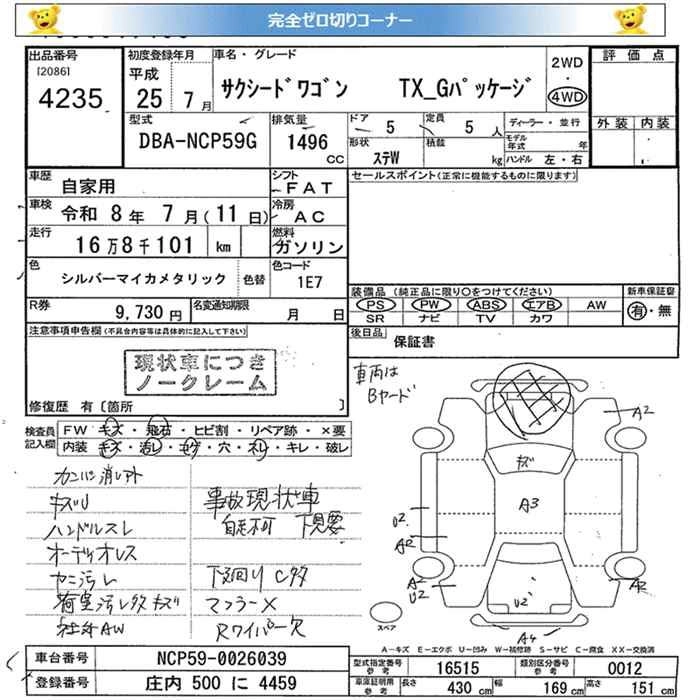 完全ゼロ切りコーナー
出品番号 [2086] 4235
初度登録年月 平成 25年 7月
車名・グレード サクシードワゴン TX_Gパッケージ
2WD・4WD
評価点
外装 内装
型式 DBA-NCP59G
排気量 1496 CC
ドア 5 定員 5人
形状 ステW 積載 kg
ディーラー・並行
モデル年式 年
ハンドル 左・右
車歴 自家用
シフト FAT
セールスポイント(正常に機能するものに限ります)
車検 令和 8年 7月(11日)
冷房 AC
走行 16万8千101 km
燃料 ガソリン
色 シルバーマイカメタリック 色替
色コード 1E7
装備品(純正品に限り○をつけてください)
新車保証書 有・無
PS PW ABS エアB AW
SR ナビ TV カワ
R券 9,730円
名変通知期限 月 日
後日品 保証書
注意事項申告欄(不具合内容等は具体的に記入して下さい)
現状車につき
ノークレーム
修復歴 有〔箇所 〕
車両は
Bヤード
検査員記入欄
FW キズ・飛石・ヒビ割・リペア跡・×要
内装 キズ・汚レ・コゲ・穴・ネレ・キレ・破レ
キズU
ハンドルスレ
オーディオレス
ヤニ汚レ
荷室汚レ タダ キズ
社外AW
事故現状車
自走不可 下見要
下廻り Cタダ
マフラーX
Rワイパー欠
A2
キズ
A3
U2
A2
A2
U2
A2
U2
A4
スペア
A-キズ E-エクボ U-凹み W-補修跡 S-サビ C-腐食 XX-交換済
車台番号 NCP59-0026039
登録番号 庄内 500 に 4459
型式指定番号 参考 16515 類別区分番号 参考 0012
車庫証明用 参考 長さ 430 cm 幅 169 cm 高さ 151 cm